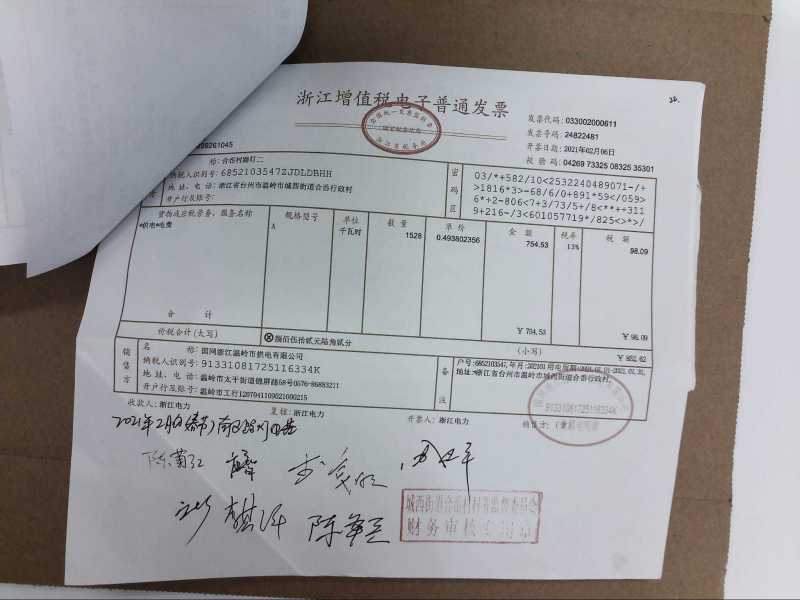 浙江增值税电子普通发票
发票代码: 033002000611
发票号码: 24822481
开票日期: 2021年02月06日
校 验 码: 04269 73325 08325 35301
99261045
称: 合岙村路灯二
纳税人识别号: 6852103547ZJDLDBHH
地 址、电 话: 浙江省台州市温岭市城西街道合岙行政村
开户行及账号:
密码区
03/*+582/10<2532240489071-/+
>1816*3>-68/6/0+891*59</059>
6*+2-806<7+3/73/5+/8<**++3119
+216-/3<601057719*/825<>*>/
货物或应税劳务、服务名称 规格型号 单位 数 量 单 价 金 额 税率 税 额
*供电*电费 A 千瓦时 1528 0.493802356 754.53 13% 98.09
合 计 ￥754.53 ￥98.09
价税合计(大写) ⊗捌佰伍拾贰元陆角贰分 (小写) ￥852.62
销售方
名 称: 国网浙江温岭市供电有限公司
纳税人识别号: 91331081725116334K
地 址、电 话: 温岭市太平街道锦屏路58号0576-86883211
开户行及账号: 温岭市工行1207041109521000215
备注
户号:6852103547,年月:202101
地址:浙江省台州市温岭市城西街道合岙行政村,
收款人: 浙江电力 复核: 浙江电力 开票人: 浙江电力 销售方: (章)
91331081725116334K
陈菊红
财务审核专用章